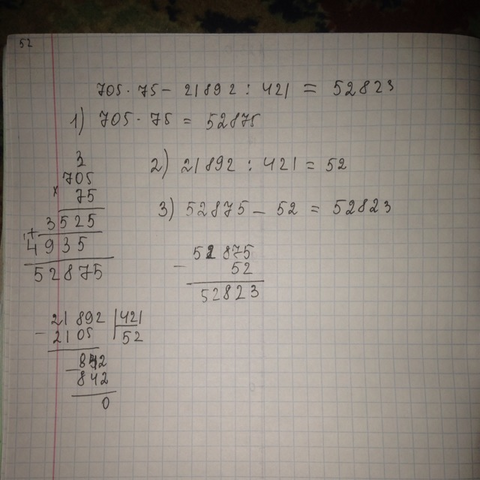 52
705 · 75 - 21892 : 421 = 52823
1) 705 · 75 = 52875
2) 21892 : 421 = 52
3) 52875 - 52 = 52823
3
705
× 75
+ 3525
4935
52875
52875
- 52
52823
- 21892 | 421
2105 | 52
- 842
842
0